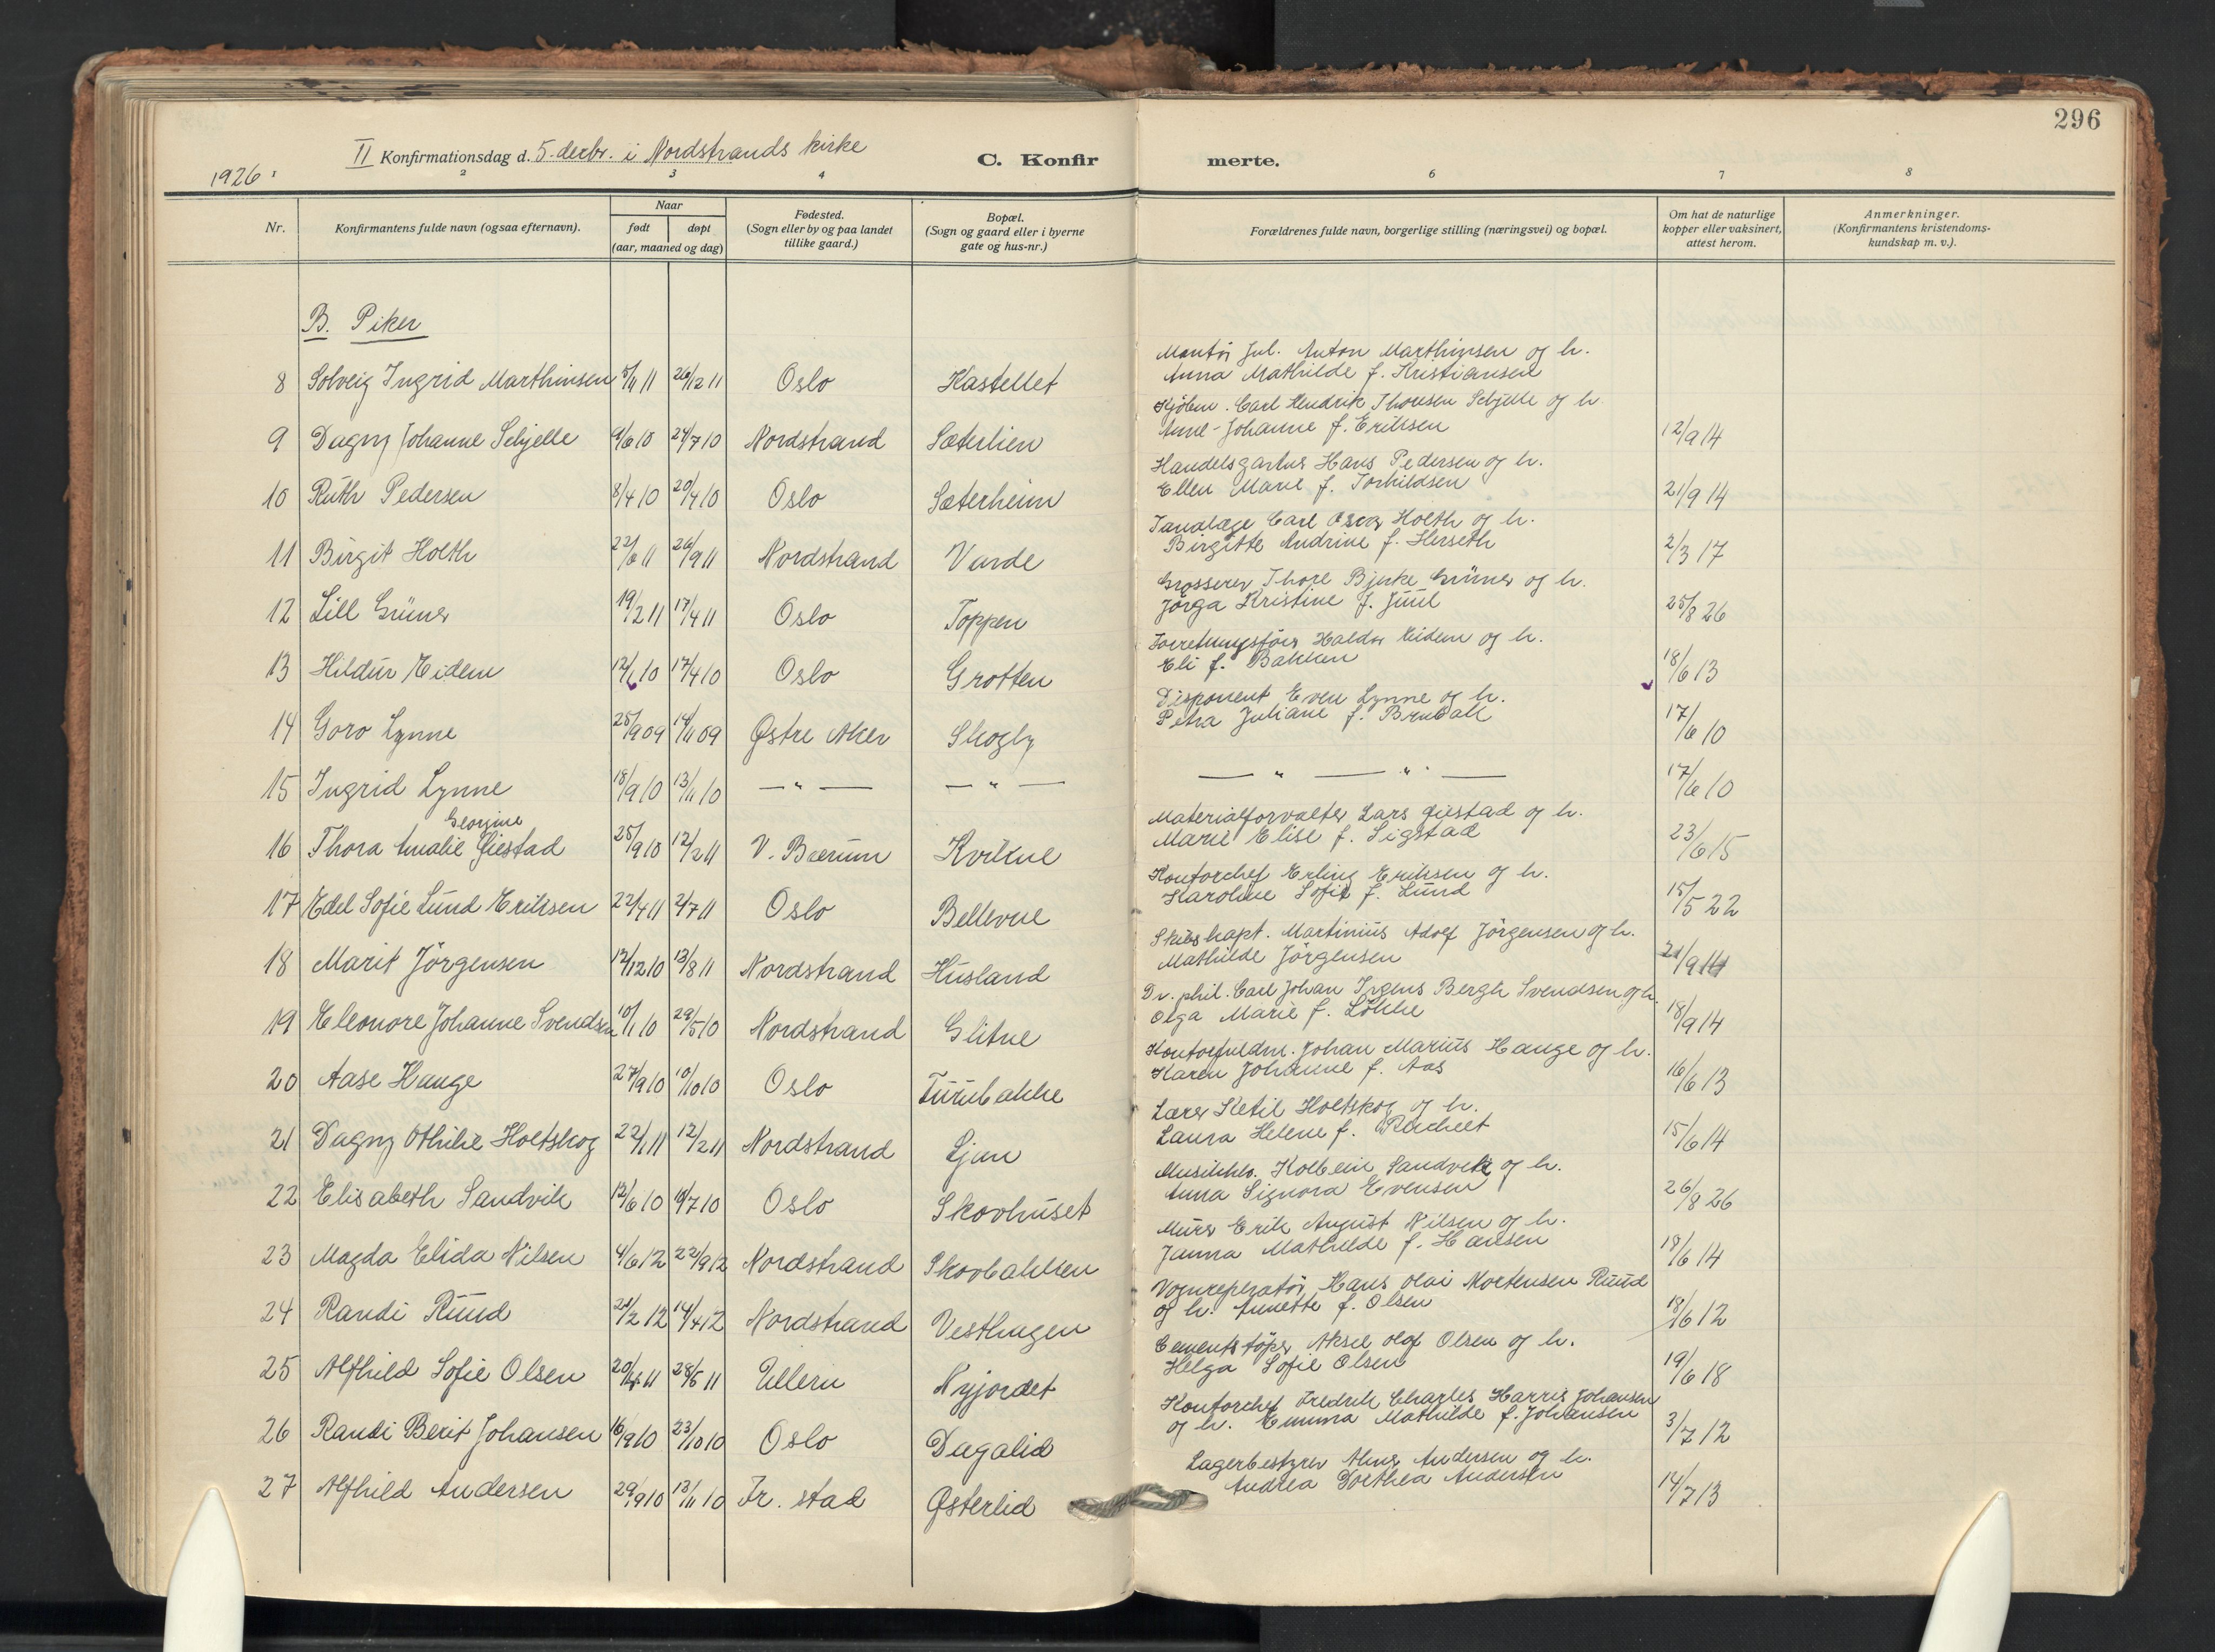 296
II Konfirmationsdag d. 5. decbr. i Nordstrands kirke
C. Konfirmerte.
1926.
2 3 4 6 7 8
Nr.
Konfirmantens fulde navn (ogsaa efternavn).
Naar
født døpt
(aar, maaned og dag)
Fødested.
(Sogn eller by og paa landet
tillike gaard.)
Bopæl.
(Sogn og gaard eller i byerne
gate og hus-nr.)
Forældrenes fulde navn, borgerlige stilling (næringsvei) og bopæl.
Om hat de naturlige
kopper eller vaksinert,
attest herom.
Anmerkninger.
(Konfirmantens kristendoms-
kundskap m. v.).
B. Piker
8 Solveig Ingrid Marthinsen 5/11 11 26/12 11 Oslo Kastellet
Montør Jul. Anton Marthinsen og h.
Anna Mathilde f. Kristiansen
9 Dagny Johanne Schjelle 9/6 10 24/7 10 Nordstrand Sæterlien
Kjøbm. Carl Hendrik Thoresen Schjelle og h.
Anne-Johanne f. Eriksen 12/9 14
10 Ruth Pedersen 8/4 10 20/4 10 Oslo Sæterheim
Handelsgartner Hans Pedersen og h.
Ellen Marie f. Torkildsen 21/9 14
11 Birgit Holth 22/6 11 26/9 11 Nordstrand Varde
Tandlæge Carl Oscar Holth og h.
Birgitte Andrine f. Herseth 2/3 17
12 Lill Grüner 19/2 11 17/4 11 Oslo Toppen
Grosserer Thore Bjerke Grüner og h.
Jørga Kristine f. Juul 25/8 26
13 Hildur Eidem 12/1 10 17/4 10 Oslo Grotten
Forretningsfører Haldor Eidem og h.
Eli f. Bakken 18/6 13
14 Goro Lynne 25/9 09 14/11 09 Østre Aker Skogly
Disponent Even Lynne og h.
Petra Juliane f. 17/6 10
15 Ingrid Lynne 18/9 10 13/11 10 — " — — " —
— " — " — 17/6 10
Georgine
16 Thora Amalie Giestad 25/9 10 12/2 11 V. Bærum Kvikne
Materialforvalter Lars Giestad og h.
Marie Elise f. Sigstad 23/6 15
17 Edel Sofie Lund Eriksen 22/4 11 2/7 11 Oslo Bellevue
Kontorchef Erling Eriksen og h.
Karoline Sofie f. Lund 15/5 22
18 Marit Jörgensen 12/12 10 13/8 11 Nordstrand Husland
Skibskapt. Martinius Adolf Jörgensen og h.
Mathilde Jörgensen 21/9 14
19 Eleonore Johanne Svendsen 10/1 10 29/5 10 Nordstrand Glitne
Dr. phil. Carl Johan Irgens Bergh Svendsen og h.
Olga Marie f. Løkke 18/9 14
20 Aase Hauge 27/9 10 10/10 10 Oslo Furubakke
Kontorfuldm. Johan Marius Hauge og h.
Karen Johanne f. Aas 16/6 13
21 Dagny Othilie Holtskog 22/1 11 12/2 11 Nordstrand Ljan
Lærer Ketil Holtskog og h.
Laura Helene f. 15/6 14
22 Elisabeth Sandvik 12/6 10 10/7 10 Oslo Skovhuset
Musikhlr. Kolbein Sandvik og h.
Anna Signora Evensen 26/8 26
23 Magda Elida Nilsen 4/6 12 22/9 12 Nordstrand Skovbakken
Murer Erik August Nilsen og h.
Janna Mathilde f. Hansen 18/6 14
24 Randi Ruud 21/2 12 14/4 12 Nordstrand Vesthagen
Vognreperatör Hans Olai Mortensen Ruud
og h. Annette f. Olsen 18/6 12
25 Alfhild Sofie Olsen 20/4 11 28/5 11 Ullern Nyjordet
Cementstøper Aksel Olaf Olsen og h.
Helga Sofie Olsen 19/6 18
26 Randi Berit Johansen 16/9 10 23/10 10 Oslo Dagalid
Kontorchef Fredrik Charles Harris Johansen
og h. Emma Mathilde f. Johansen 3/7 12
27 Alfhild Andersen 29/9 10 13/11 10 Fr. stad Østerlid
Lagerbestyrer Andersen og h.
Andrea Dorthea Andersen 14/7 13